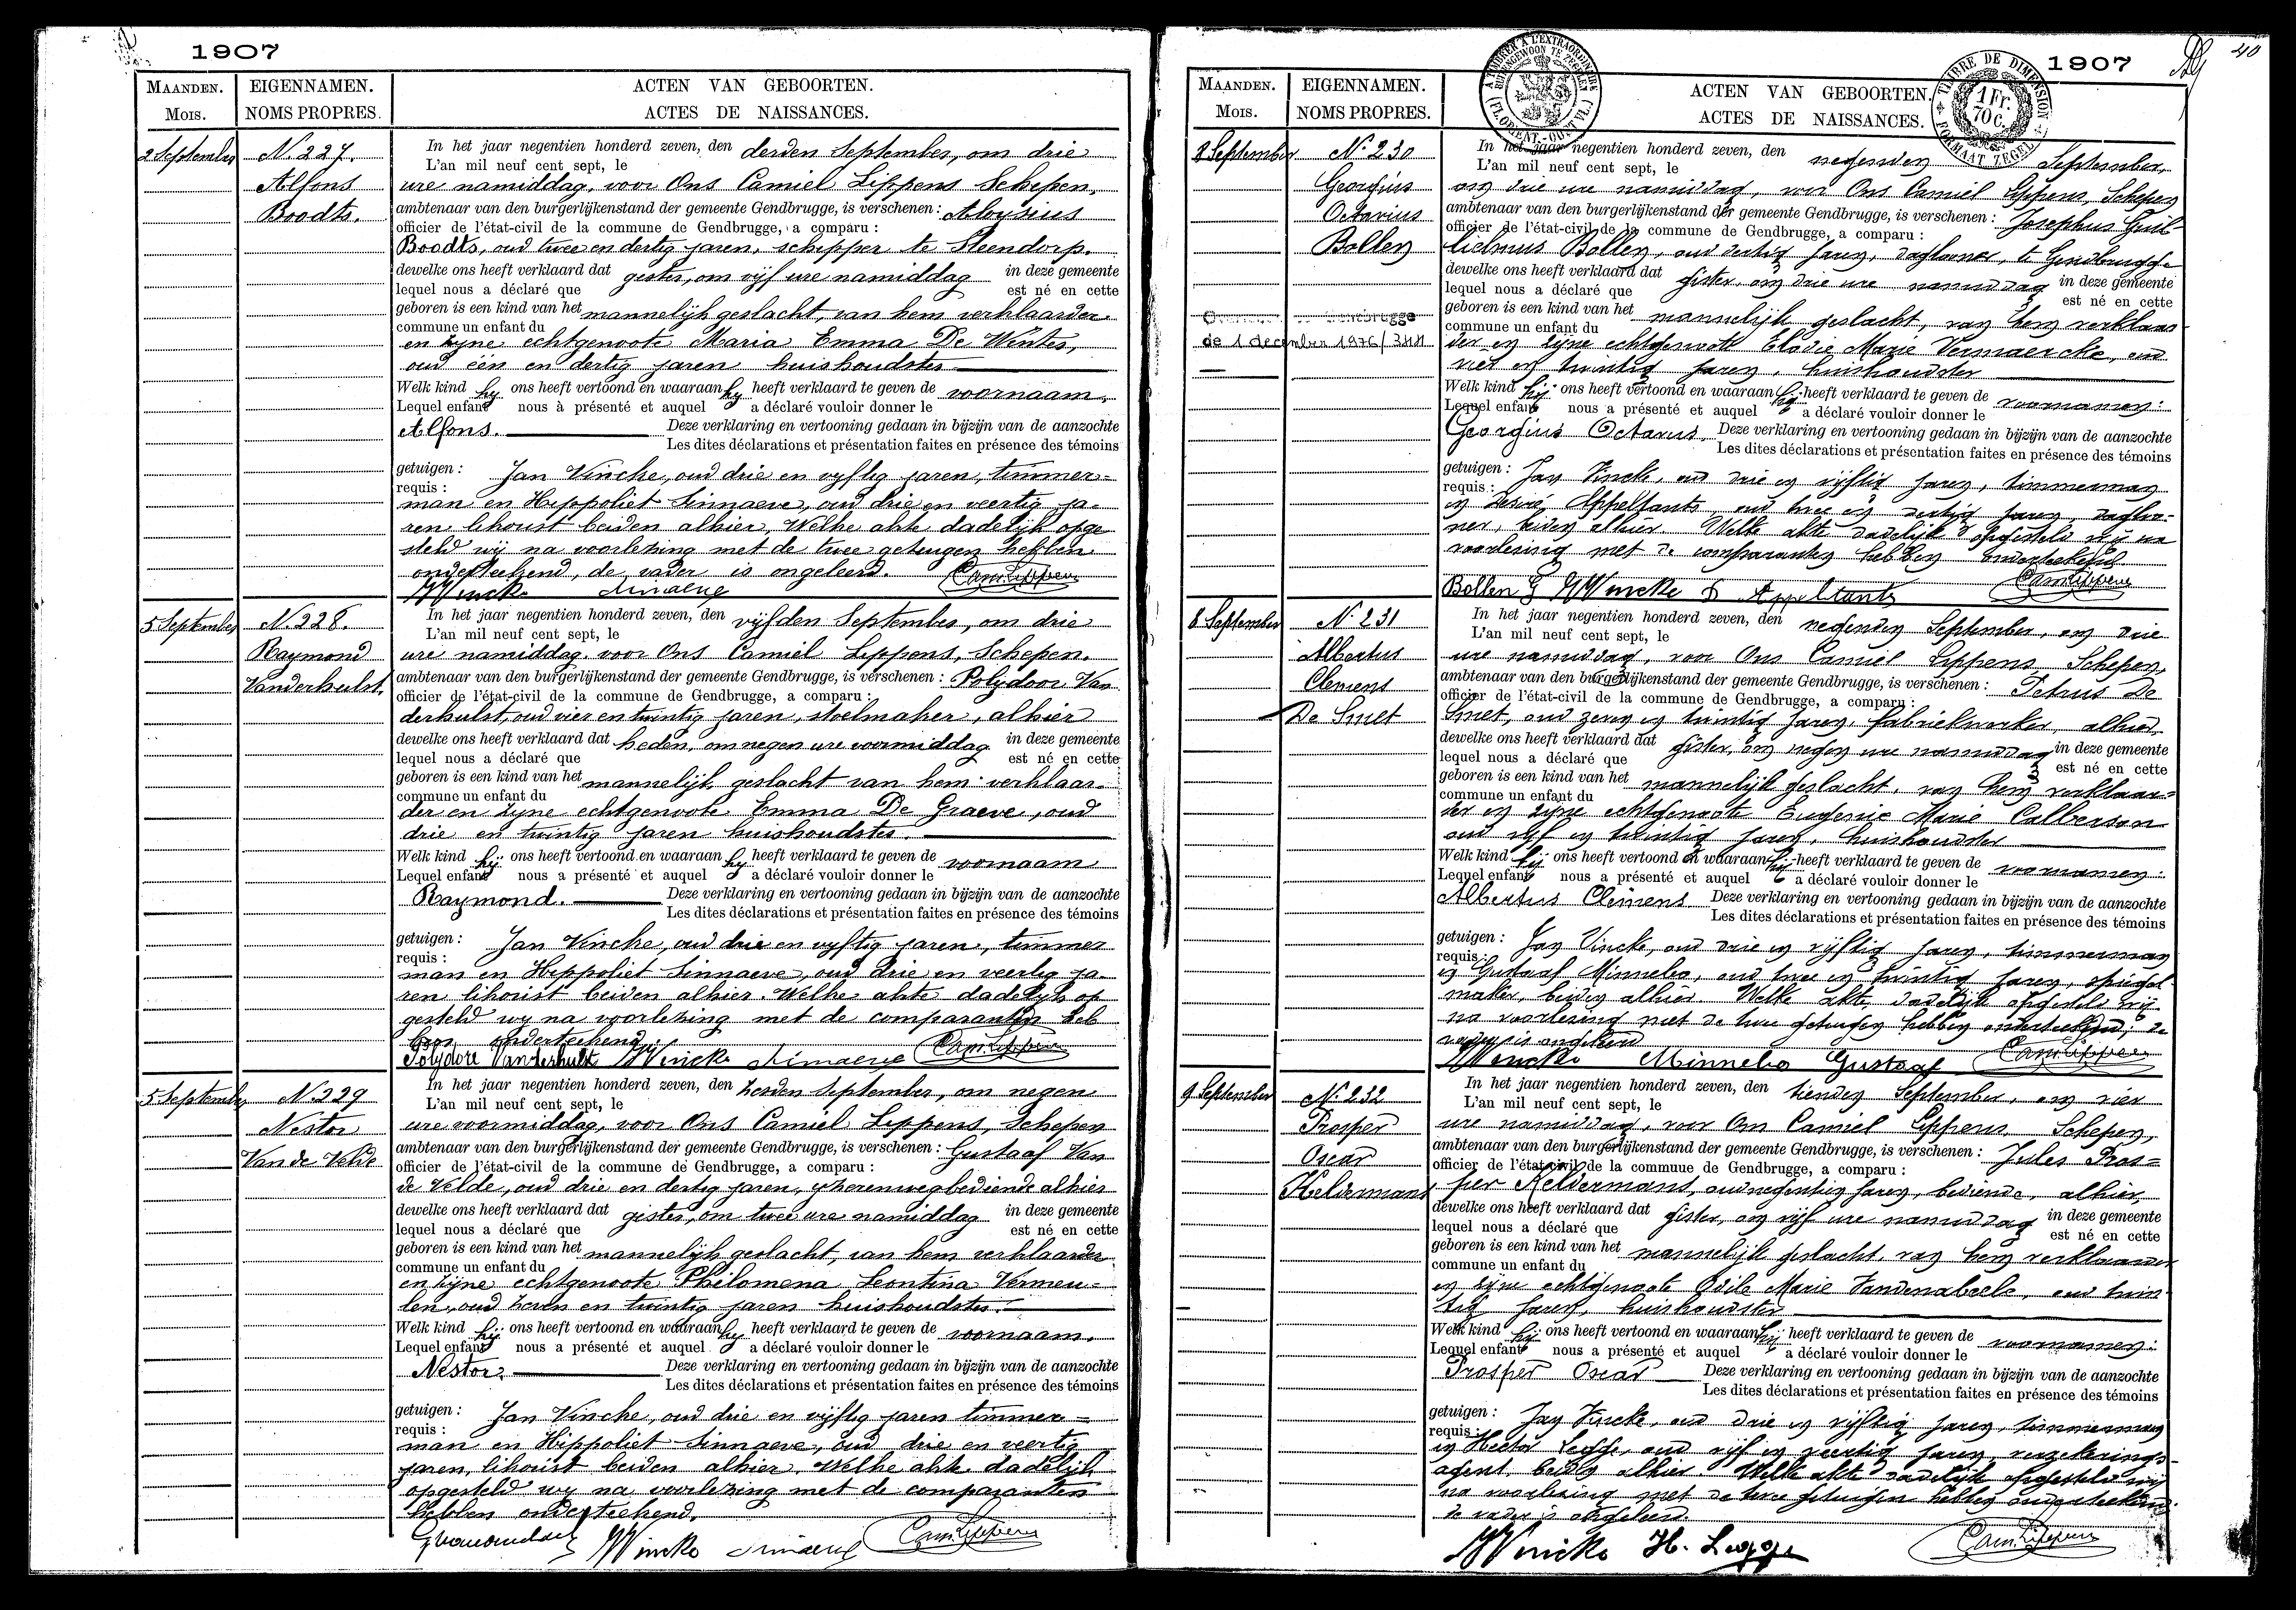 1907
MAANDEN. EIGENNAMEN. ACTEN VAN GEBOORTEN.
MOIS. NOMS PROPRES. ACTES DE NAISSANCES.
2 September
N. 227.
Alfons
Boodts.
In het jaar negentien honderd zeven, den derden September, om drie
L'an mil neuf cent sept, le
ure namiddag, voor Ons Camiel Lippens Schepen,
ambtenaar van den burgerlijkenstand der gemeente Gendbrugge, is verschenen : Aloysius
officier de l'état-civil de la commune de Gendbrugge, a comparu :
Boodts, oud twee en dertig jaren, schipper te Steendorp.
dewelke ons heeft verklaard dat gister, om vijf ure namiddag in deze gemeente
lequel nous a déclaré que est né en cette
geboren is een kind van het mannelijk geslacht, van hem verklaarder
commune un enfant du
en zijne echtgenoote Maria Emma De Winter,
oud één en dertig jaren huishoudster
Welk kind hij ons heeft vertoond en waaraan hij heeft verklaard te geven de voornaam,
Lequel enfant nous à présenté et auquel a déclaré vouloir donner le
Alfons. Deze verklaring en vertooning gedaan in bijzijn van de aanzochte
Les dites déclarations et présentation faites en présence des témoins
getuigen : Jan Vincke, oud drie en vyftig jaren, timmer=
requis :
man en Hippoliet Sinnaeve, oud drie en veertig ja-
ren, beiden alhier, Welke akte dadelijk opge
steld wij na voorlezing met de twee getuigen hebben
onderteekend, de vader is ongeleerd.
Vincke Sinnaeve Cam. Lippens
5 September
N. 228.
Raymond
Vanderhulst.
In het jaar negentien honderd zeven, den vijfden September, om drie
L'an mil neuf cent sept, le
ure namiddag, voor Ons Camiel Lippens, Schepen,
ambtenaar van den burgerlijkenstand der gemeente Gendbrugge, is verschenen : Polydoor Van
officier de l'état-civil de la commune de Gendbrugge, a comparu :
derhulst, oud vier en twintig jaren, stoelmaker, alhier
dewelke ons heeft verklaard dat heden, om negen ure voormiddag in deze gemeente
lequel nous a déclaré que est né en cette
geboren is een kind van het mannelijk geslacht van hem verklaar-
commune un enfant du
der en zyne echtgenoote Emma De Graeve, oud
drie en twintig jaren huishoudster.
Welk kind hij ons heeft vertoond en waaraan hij heeft verklaard te geven de voornaam
Lequel enfant nous a présenté et auquel a déclaré vouloir donner le
Raymond. Deze verklaring en vertooning gedaan in bijzijn van de aanzochte
Les dites déclarations et présentation faites en présence des témoins
getuigen : Jan Vincke, oud drie en vyftig jaren, timmer
requis :
man en Hippoliet Sinnaeve, oud drie en veertig ja-
ren beiden alhier. Welke akte dadelyk op
gesteld wy na voorlezing met de comparanten heb
ben onderteekend.
Polydore Vanderhulst Vincke Sinnaeve Cam. Lippens
5 September
N. 229
Nestor
Van de Velde
In het jaar negentien honderd zeven, den zesden September, om negen
L'an mil neuf cent sept, le
ure voormiddag, voor Ons Camiel Lippens, Schepen
ambtenaar van den burgerlijkenstand der gemeente Gendbrugge, is verschenen : Gustaaf Van
officier de l'état-civil de la commune de Gendbrugge, a comparu :
de Velde, oud drie en dertig jaren, yzerenwegbediende alhier
dewelke ons heeft verklaard dat gister, om twee ure namiddag in deze gemeente
lequel nous a déclaré que est né en cette
geboren is een kind van het mannelijk geslacht, van hem verklaarder
commune un enfant du
en zijne echtgenoote Philomena Leontina Vermeu=
len, oud zeven en twintig jaren huishoudster.
Welk kind hij ons heeft vertoond en waaraan hij heeft verklaard te geven de voornaam.
Lequel enfant nous a présenté et auquel a déclaré vouloir donner le
Nestor. Deze verklaring en vertooning gedaan in bijzijn van de aanzochte
Les dites déclarations et présentation faites en présence des témoins
getuigen : Jan Vincke, oud drie en vijftig jaren timmer=
requis :
man en Hippoliet Sinnaeve, oud drie en veertig
jaren, beiden alhier. Welke akte dadelijk
opgesteld wy na voorlezing met de comparanten
hebben onderteekend.
Vincke Sinnaeve Cam. Lippens
1907
40
A TIMBRER A L'EXTRAORDINAIRE
BUITENGEWOON TE ZEGELEN
(FL. ORIENT. - OOST VL.)
TIMBRE DE DIMENSION
1 Fr.
70 c.
FORMAAT ZEGEL
MAANDEN. EIGENNAMEN. ACTEN VAN GEBOORTEN.
MOIS. NOMS PROPRES. ACTES DE NAISSANCES.
8 September
N. 230
Georgius
Octavius
Bollen
de 1 december 1976/
In het jaar negentien honderd zeven, den negenden September,
L'an mil neuf cent sept, le
om drie ure namiddag, voor Ons Camiel Lippens, Schepen
ambtenaar van den burgerlijkenstand der gemeente Gendbrugge, is verschenen : Josephus Guil-
officier de l'état-civil de la commune de Gendbrugge, a comparu :
lielmus Bollen, oud dertig jaren, dagloner, te Gendbrugge
dewelke ons heeft verklaard dat gister, om drie ure namiddag in deze gemeente
lequel nous a déclaré que est né en cette
geboren is een kind van het mannelijk geslacht, van hem verklaar-
commune un enfant du
der en zijne echtgenoote Elodie Marie Vermaercke, oud
vier en twintig jaren, huishoudster
Welk kind hij ons heeft vertoond en waaraan hij heeft verklaard te geven de voornamen:
Lequel enfant nous a présenté et auquel a déclaré vouloir donner le
Georgius Octavus. Deze verklaring en vertooning gedaan in bijzijn van de aanzochte
Les dites déclarations et présentation faites en présence des témoins
getuigen : Jan Vincke, oud drie en vijftig jaren, timmerman
requis :
en Desiré Appeltants, oud twee en dertig jaren, dagloo-
ner, beiden alhier. Welke akte dadelijk opgesteld wij na
voorlezing met de comparanten hebben onderteekend
Bollen G Vincke D Appeltants Cam. Lippens
8 September
N. 231
Albertus
Clemens
De Smet
In het jaar negentien honderd zeven, den negenden September, om drie
L'an mil neuf cent sept, le
ure namiddag, voor Ons Camiel Lippens Schepen,
ambtenaar van den burgerlijkenstand der gemeente Gendbrugge, is verschenen : Petrus De
officier de l'état-civil de la commune de Gendbrugge, a comparu :
Smet, oud zeven en twintig jaren, fabriekwerker, alhier,
dewelke ons heeft verklaard dat gister, om negen ure namiddag in deze gemeente
lequel nous a déclaré que est né en cette
geboren is een kind van het mannelijk geslacht, van hem verklaar=
commune un enfant du
der en zijne echtgenoote Eugenie Marie Calberson
oud vijf en twintig jaren, huishoudster
Welk kind hij ons heeft vertoond en waaraan hij heeft verklaard te geven de voornamen:
Lequel enfant nous a présenté et auquel a déclaré vouloir donner le
Albertus Clemens Deze verklaring en vertooning gedaan in bijzijn van de aanzochte
Les dites déclarations et présentation faites en présence des témoins
getuigen : Jan Vincke, oud drie en vijftig jaren, timmerman
requis :
en Gustaaf Minnebo, oud twee en twintig jaren, spiegel-
maker, beiden alhier. Welke akte dadelijk opgesteld wij
na voorlezing met de twee getuigen hebben onderteekend; de
vader is ongeleerd
Vincke Minnebo Gustaaf Cam. Lippens
9 September
N. 232
Prosper
Oscar
Keldermans
In het jaar negentien honderd zeven, den tienden September, om vier
L'an mil neuf cent sept, le
ure namiddag, voor Ons Camiel Lippens, Schepen,
ambtenaar van den burgerlijkenstand der gemeente Gendbrugge, is verschenen : Jules Pros=
officier de l'état-civil de la commune de Gendbrugge, a comparu :
per Keldermans, oud negentien jaren, bediende, alhier,
dewelke ons heeft verklaard dat gister, om vijf ure namiddag in deze gemeente
lequel nous a déclaré que est né en cette
geboren is een kind van het mannelijk geslacht, van hem verklaarder
commune un enfant du
en zijne echtgenoote Odile Marie Vandenabeele, oud twin-
tig jaren, huishoudster
Welk kind hij ons heeft vertoond en waaraan hij heeft verklaard te geven de voornamen:
Lequel enfant nous a présenté et auquel a déclaré vouloir donner le
Prosper Oscar Deze verklaring en vertooning gedaan in bijzijn van de aanzochte
Les dites déclarations et présentation faites en présence des témoins
getuigen : Jan Vincke, oud drie en vijftig jaren, timmerman
requis :
en Hector Legge, oud vijf en veertig jaren, verzekerings-
agent, beiden alhier. Welke akte dadelijk opgesteld wij
na voorlezing met de twee getuigen hebben onderteekend
de vader is ongeleerd.
Vincke H. Legge Cam. Lippens